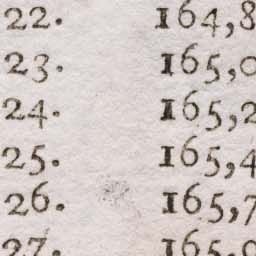 22. 164,8
23. 165,0
24. 165,2
25. 165,4
26. 165,7
27. 165,9